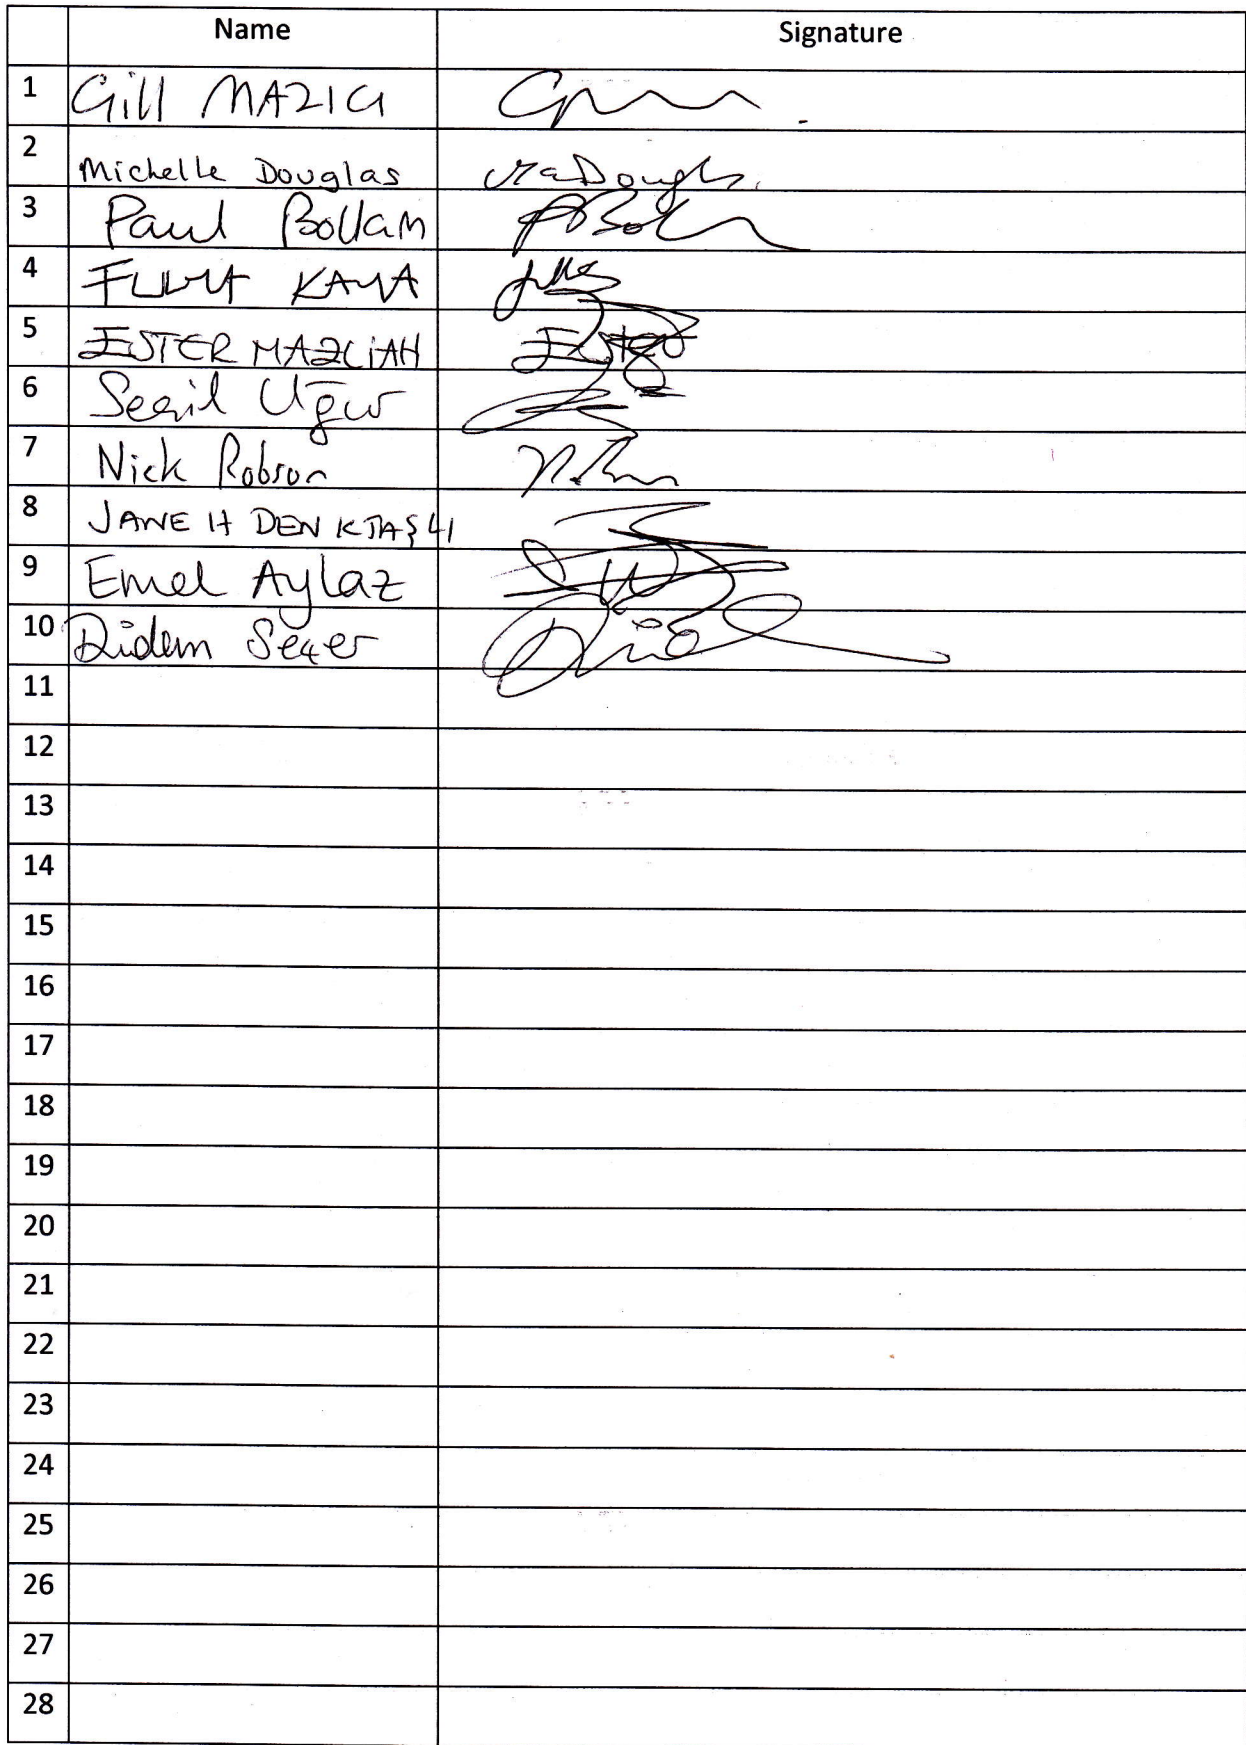 Name Signature
1 Gill MAZIG
2 Michelle Douglas
3 Paul Bollam
4 KAYA
5 ESTER MAZLiAH Ester
6 Uğur
7 Nick Robson
8 JANE H DENKTAŞLI
9 Emel Aylaz
10 Didem Seçer
11
12
13
14
15
16
17
18
19
20
21
22
23
24
25
26
27
28